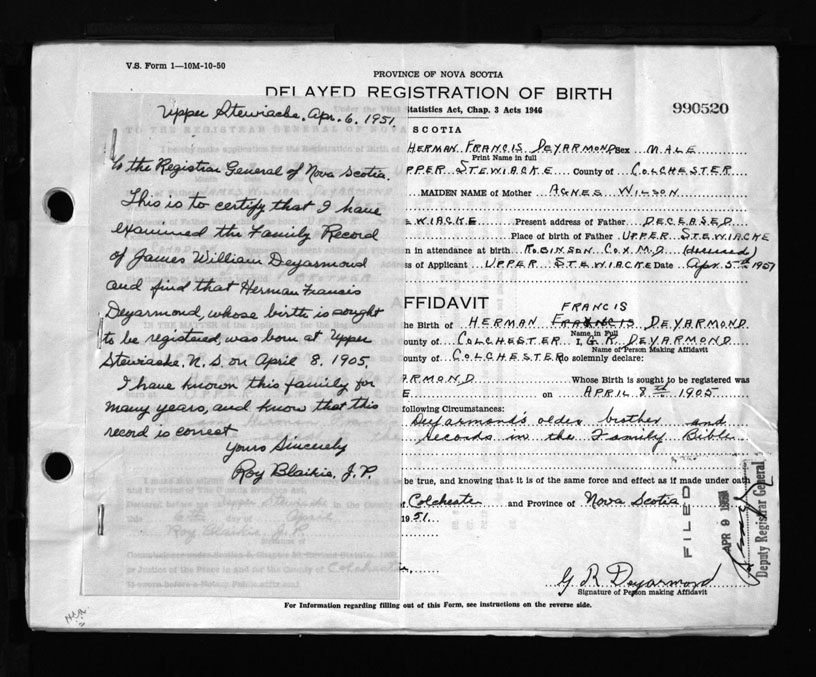 V.S. Form 1—10M-10-50
PROVINCE OF NOVA SCOTIA
DELAYED REGISTRATION OF BIRTH
Statistics Act, Chap. 3 Acts 1946
990520
Upper Stewiacke, Apr. 6, 1951.
To the Registrar General of Nova Scotia.
This is to certify that I have
examined the Family Record
of James William Deyarmond
and find that Herman Francis
Deyarmond, whose birth is sought
to be registered, was born at Upper
Stewiacke, N.S. on April 8, 1905.
I have known this family for
many years, and know that this
record is correct
Yours Sincerely
Roy Blaikie, J.P.
SCOTIA
HERMAN FRANCIS DEYARMOND Sex MALE
Print Name in full
UPPER STEWIACKE County of COLCHESTER
MAIDEN NAME of Mother AGNES WILSON
EWIACKE Present address of Father DECEASED
Place of birth of Father UPPER STEWIACKE
n in attendance at birth ROBINSON COX M.D. (deceased)
s of Applicant UPPER STEWIACKE Date Apr. 5th 1951
AFFIDAVIT
FRANCIS
the Birth of HERMAN FRANCIS DEYARMOND
Name in Full
ounty of COLCHESTER I, G.R. DEYARMOND
Name of Person Making Affidavit
ounty of COLCHESTER do solemnly declare:
ARMOND Whose Birth is sought to be registered was
E on APRIL 8th 1905
following Circumstances:
Deyarmond's older brother and
records in the Family Bible
be true, and knowing that it is of the same force and effect as if made under oath
Colchester and Province of Nova Scotia
1951.
FILED
APR 9 1951
Deputy Registrar General
G R Deyarmond
Signature of Person making Affidavit
For Information regarding filling out of this Form, see instructions on the reverse side.